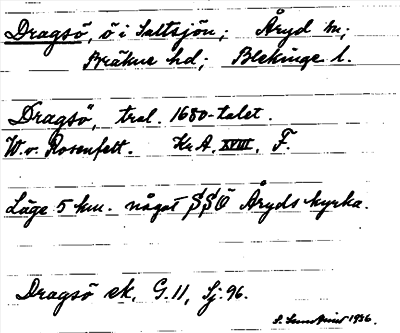 Dragsö, ö i Saltsjön; Åryd sn;
Bräkne hd; Blekinge l.
Dragsö, tral. 1680-talet.
W. v. Rosenfelt. Kr.A. XVIII. F.
Läge 5 km. något SSÖ Åryds kyrka.
Dragsö ek. G. 11, Sj. 96.
S. 1936.